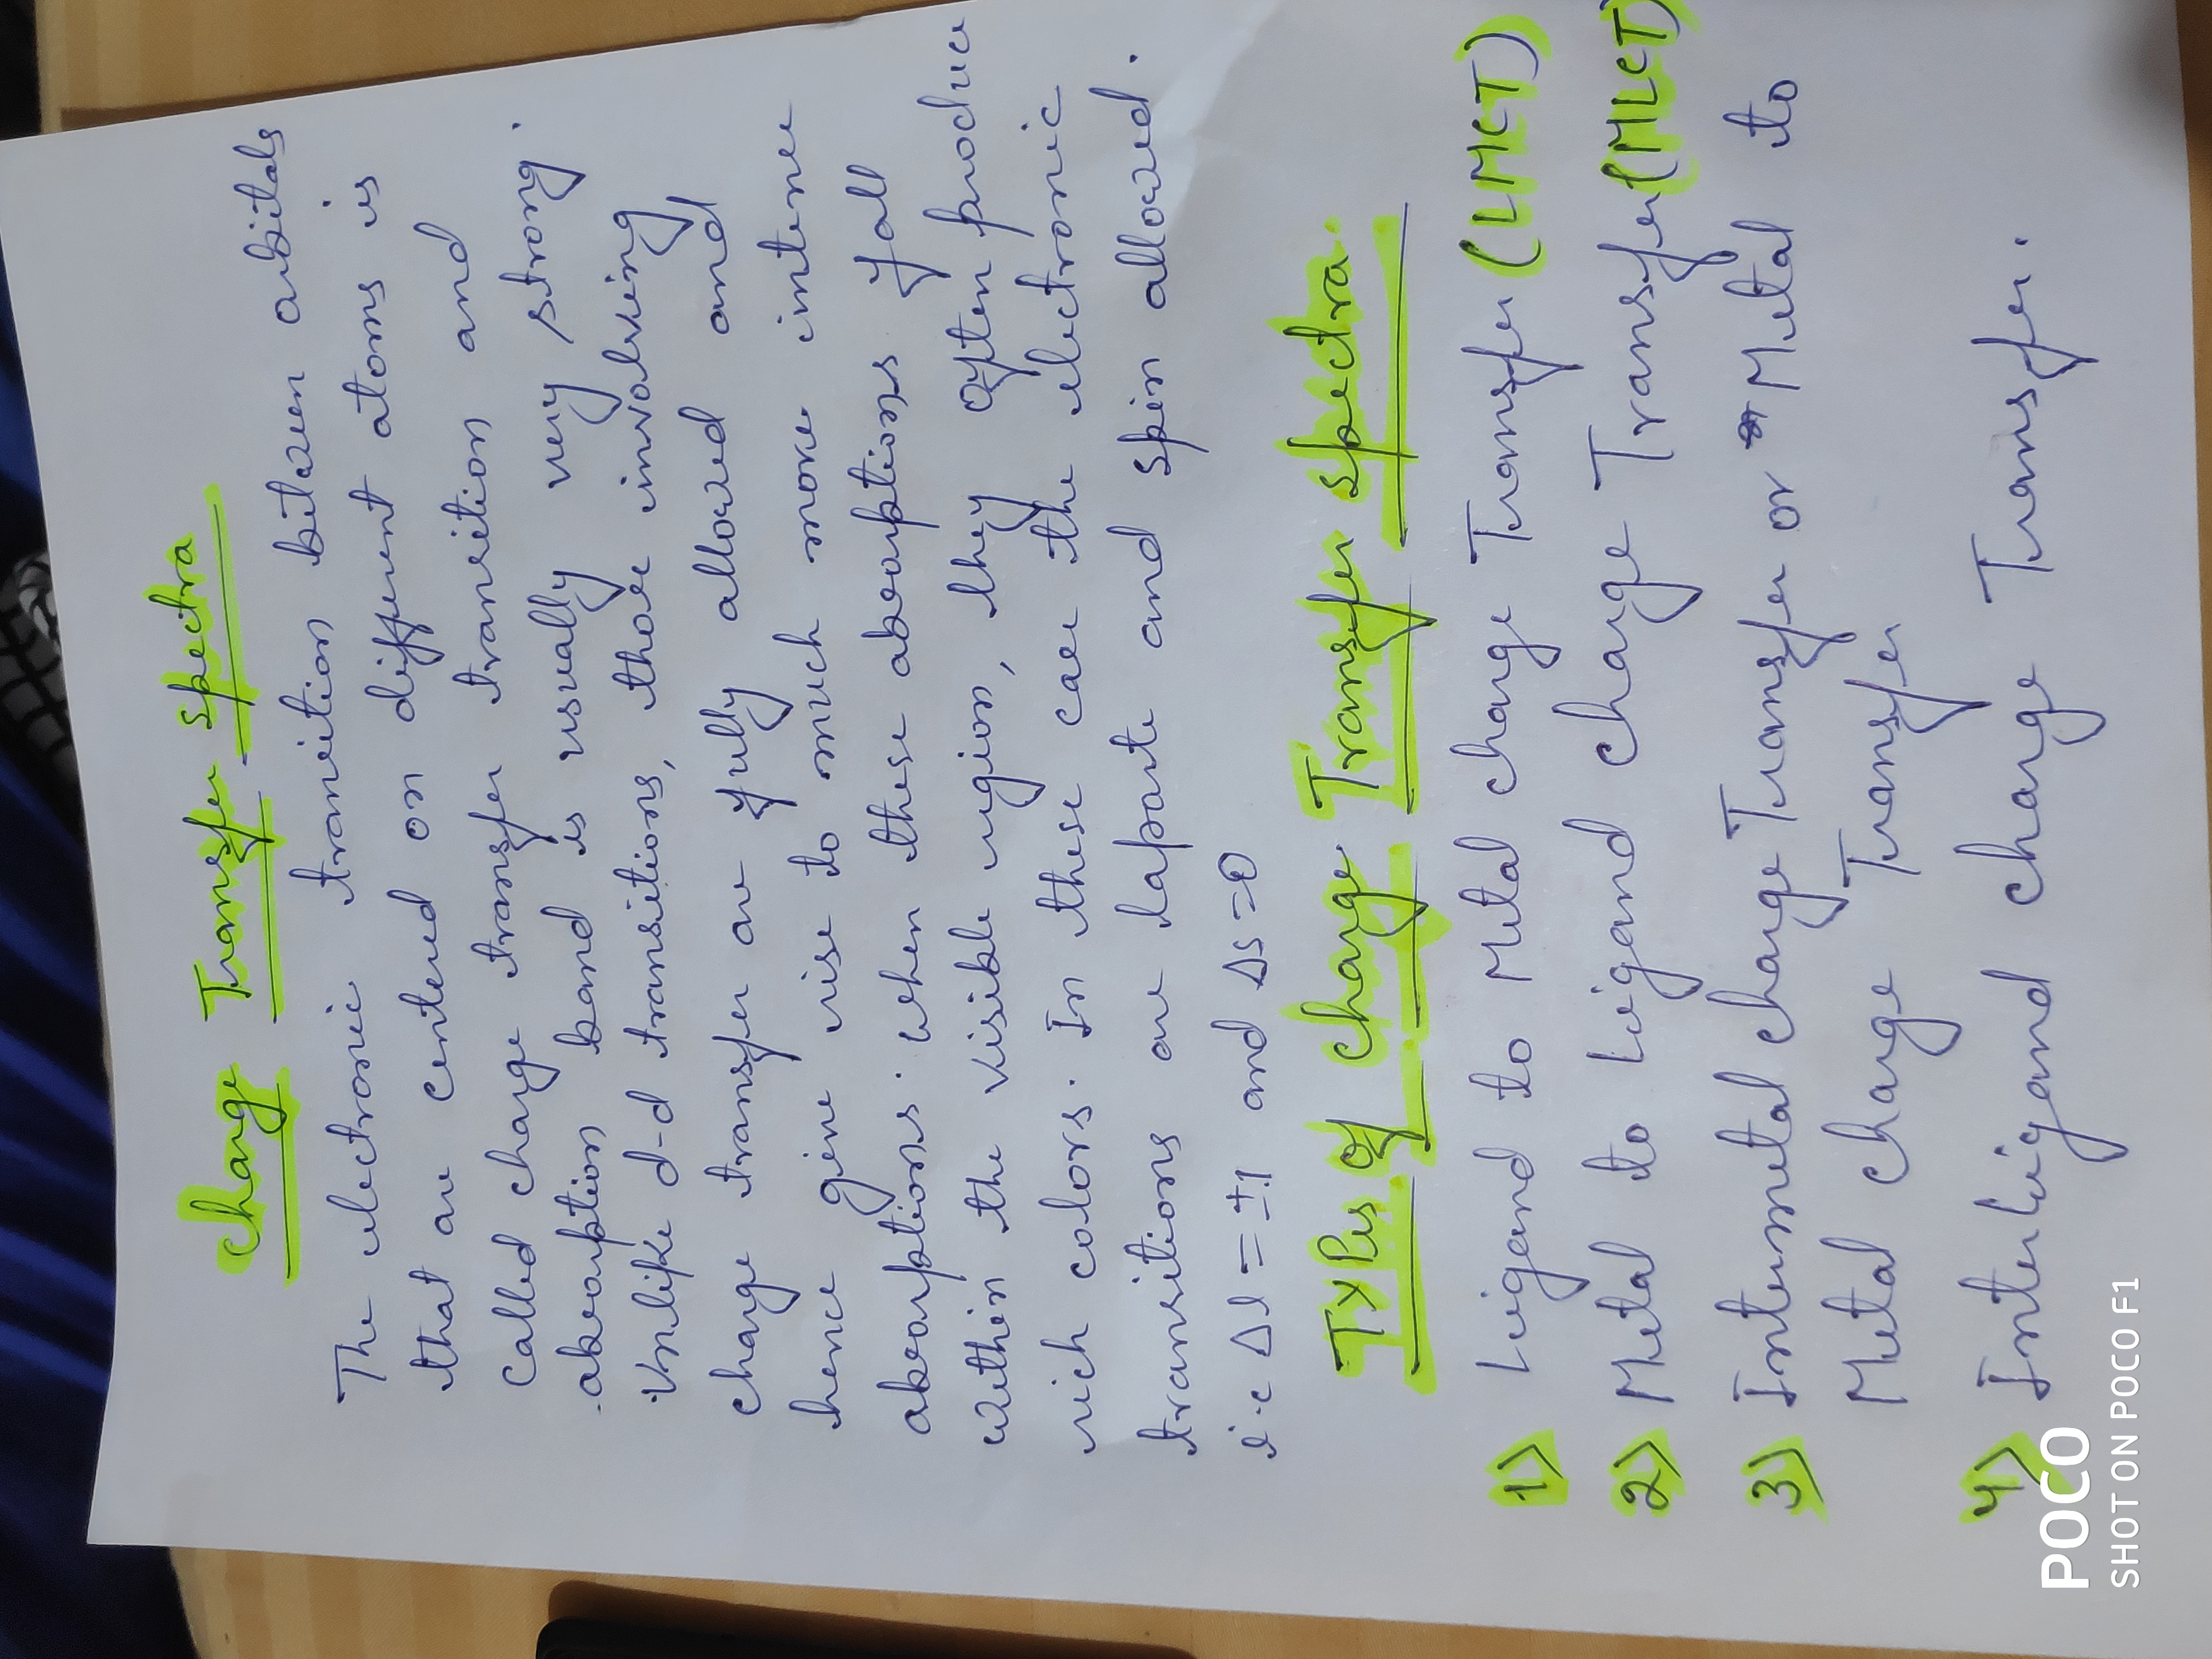 Charge Transfer Spectra
The electronic transition between orbitals
that are centered on different atoms is
called charge transfer transition and
absorption band is usually very strong.
Unlike d-d transitions, those involving
charge transfer are fully allowed and
hence give rise to much more intense
absorptions. when these absorptions fall
within the visible region, they often produce
rich colors. In these case the electronic
transitions are laporte and spin allowed.
i.e Δl = ±1 and ΔS=0
Types of Charge Transfer Spectra.
1) Ligand to Metal Charge Transfer (LMCT)
2) Metal to Ligand Charge Transfer (MLCT)
3) Intermetal Charge Transfer or Metal to
Metal Charge Transfer
4) Interligand Charge Transfer.
POCO
SHOT ON POCO F1